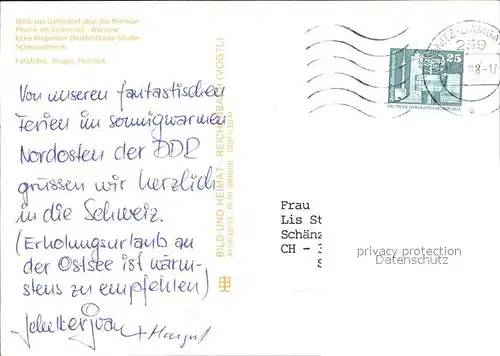 Blick von Gehlsdorf über die Warnow
Plastik am Interhotel "Warnow"
Ecke Kröpeliner Straße/Breite Straße
Schwanenteich
Farbfotos: Kruger, Rostock
Von unseren fantastischen
Ferien im sonnigwarmen
Nordosten der DDR
grüssen wir herzlich
in die Schweiz.
(Erholungsurlaub an
der Ostsee ist wärm-
stens zu empfehlen)
+ Margrit
BILD UND HEIMAT REICHENBACH (VOGTL)
NITZ-DAMGA
259
25
DEUTSCHE DEMOKRATISCHE REPUBLIK
Frau
Lis St
Schänz
CH - 3
S
privacy protection
Datenschutz